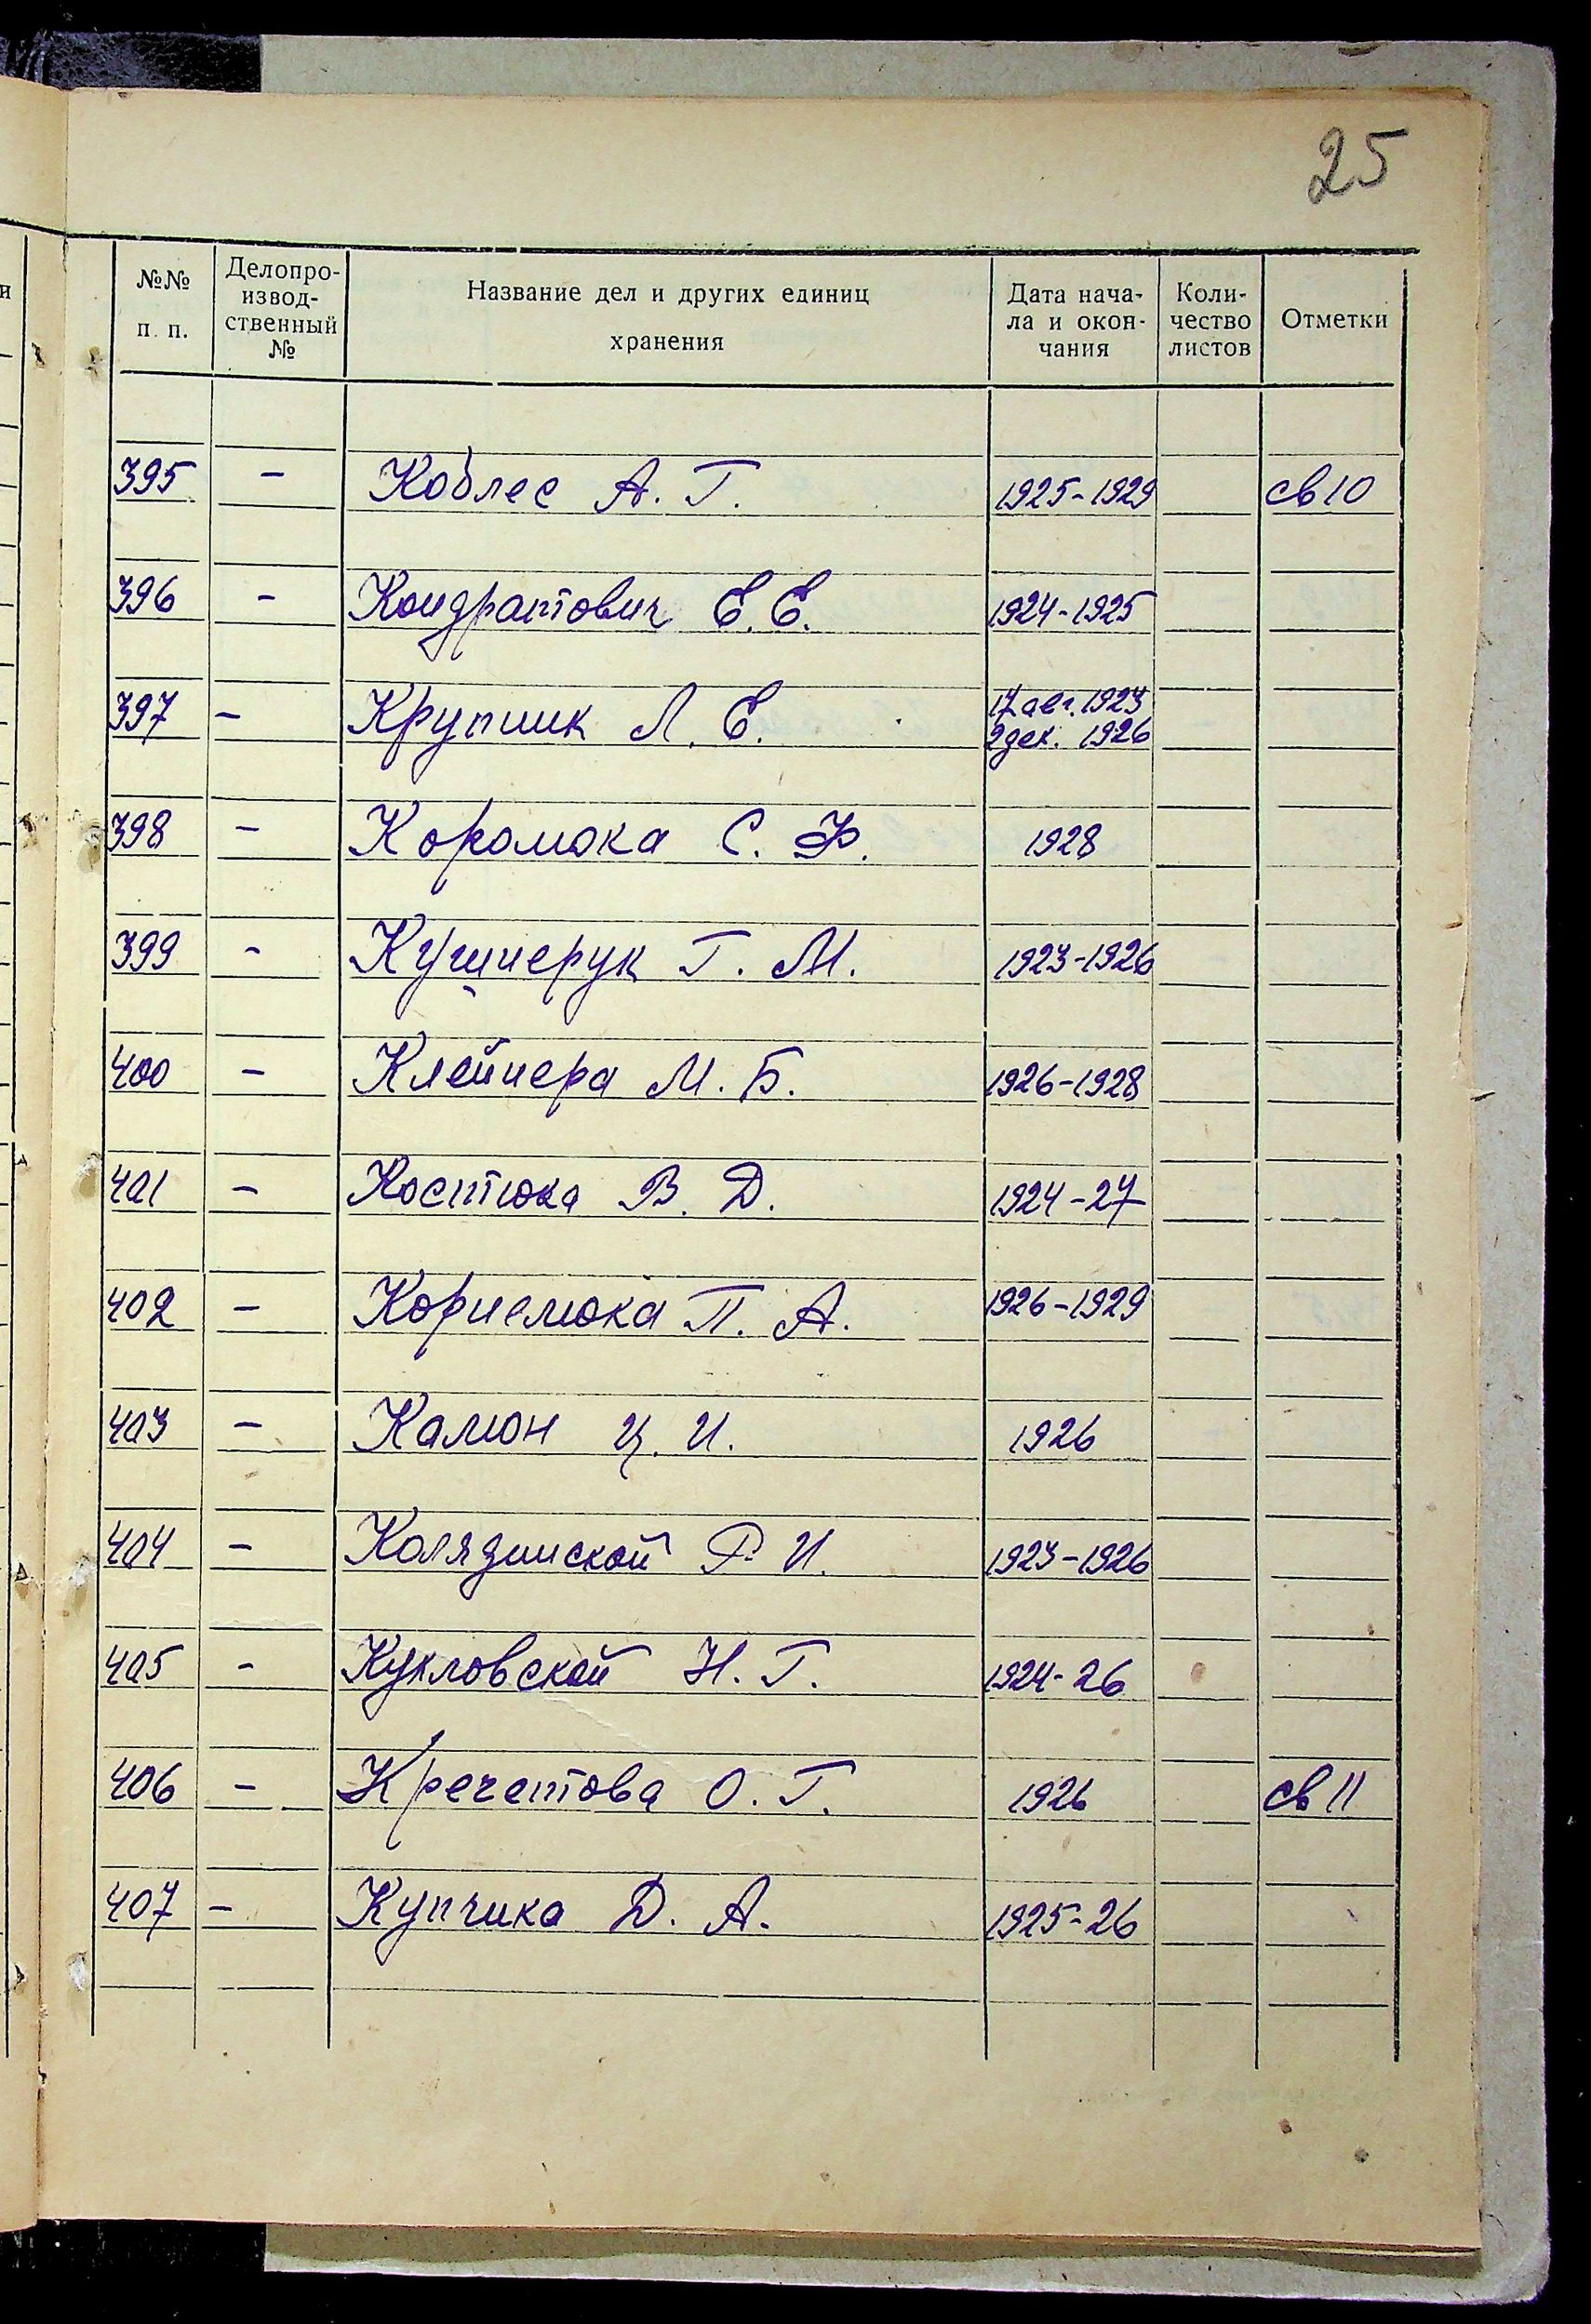 25
№№ п. п. Делопроизвод-ственный № Название дел и других единиц хранения Дата нача-ла и окон-чания Коли-чество листов Отметки
395 - Коблес А. Г. 1925-1929 св 10
396 - Кондратович Е. Е. 1924-1925
397 - Крупник Л. Е. 17 авг. 1923
2 дек. 1926
398 - С. Ф. 1928
399 - Кушнерук Г. М. 1923-1926
400 - Клейнера М. Б. 1926-1928
401 - Костюка В. Д. 1924-27
402 - Корнелюка П. А. 1926-1929
403 - Камон Ц. И. 1926
404 - Колядинской Р. И. 1923-1926
405 - Кукловской Н. Г. 1924-26
406 - Кречетова О. Г. 1926 св 11
407 - Купчика Д. А. 1925-26